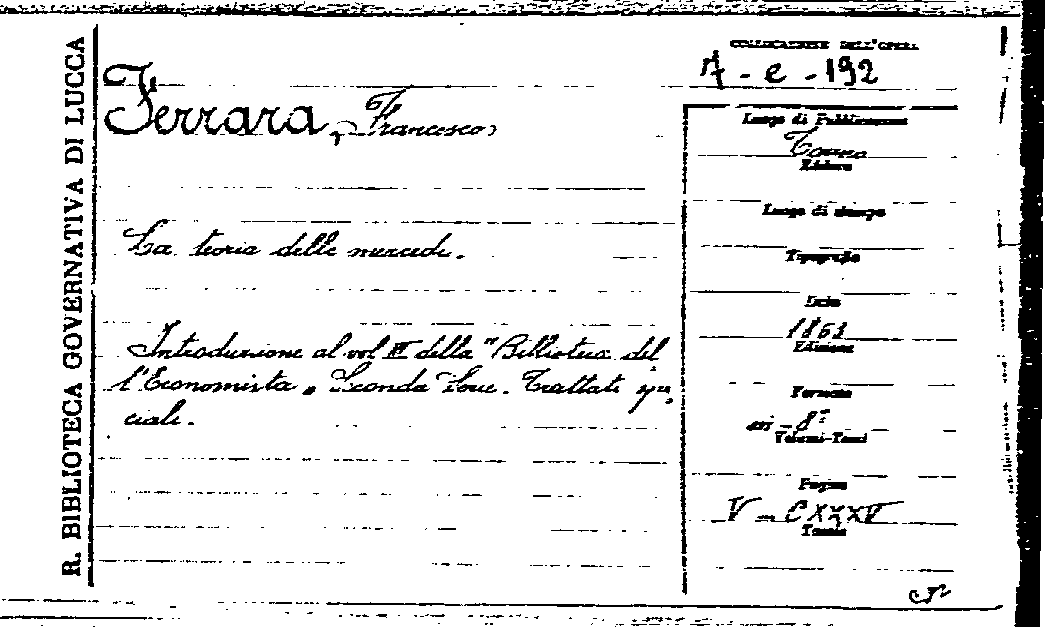 R. BIBLIOTECA GOVERNATIVA DI LUCCA
COLLOCAZIONE DELL'OPERA
7 - e - 192
Ferrara, Francesco
La teoria delle mercedi.
Introduzione al vol III della "Biblioteca del
l'Economista" Seconda Serie. Trattati spe,
ciali.
Luogo di Pubblicazione
Torino
Editore
Luogo di stampa
Tipografia
Data
1863
Edizione
Formato
in - 8°
Volumi-Tomi
Pagine
V - CXXXV
Tavole